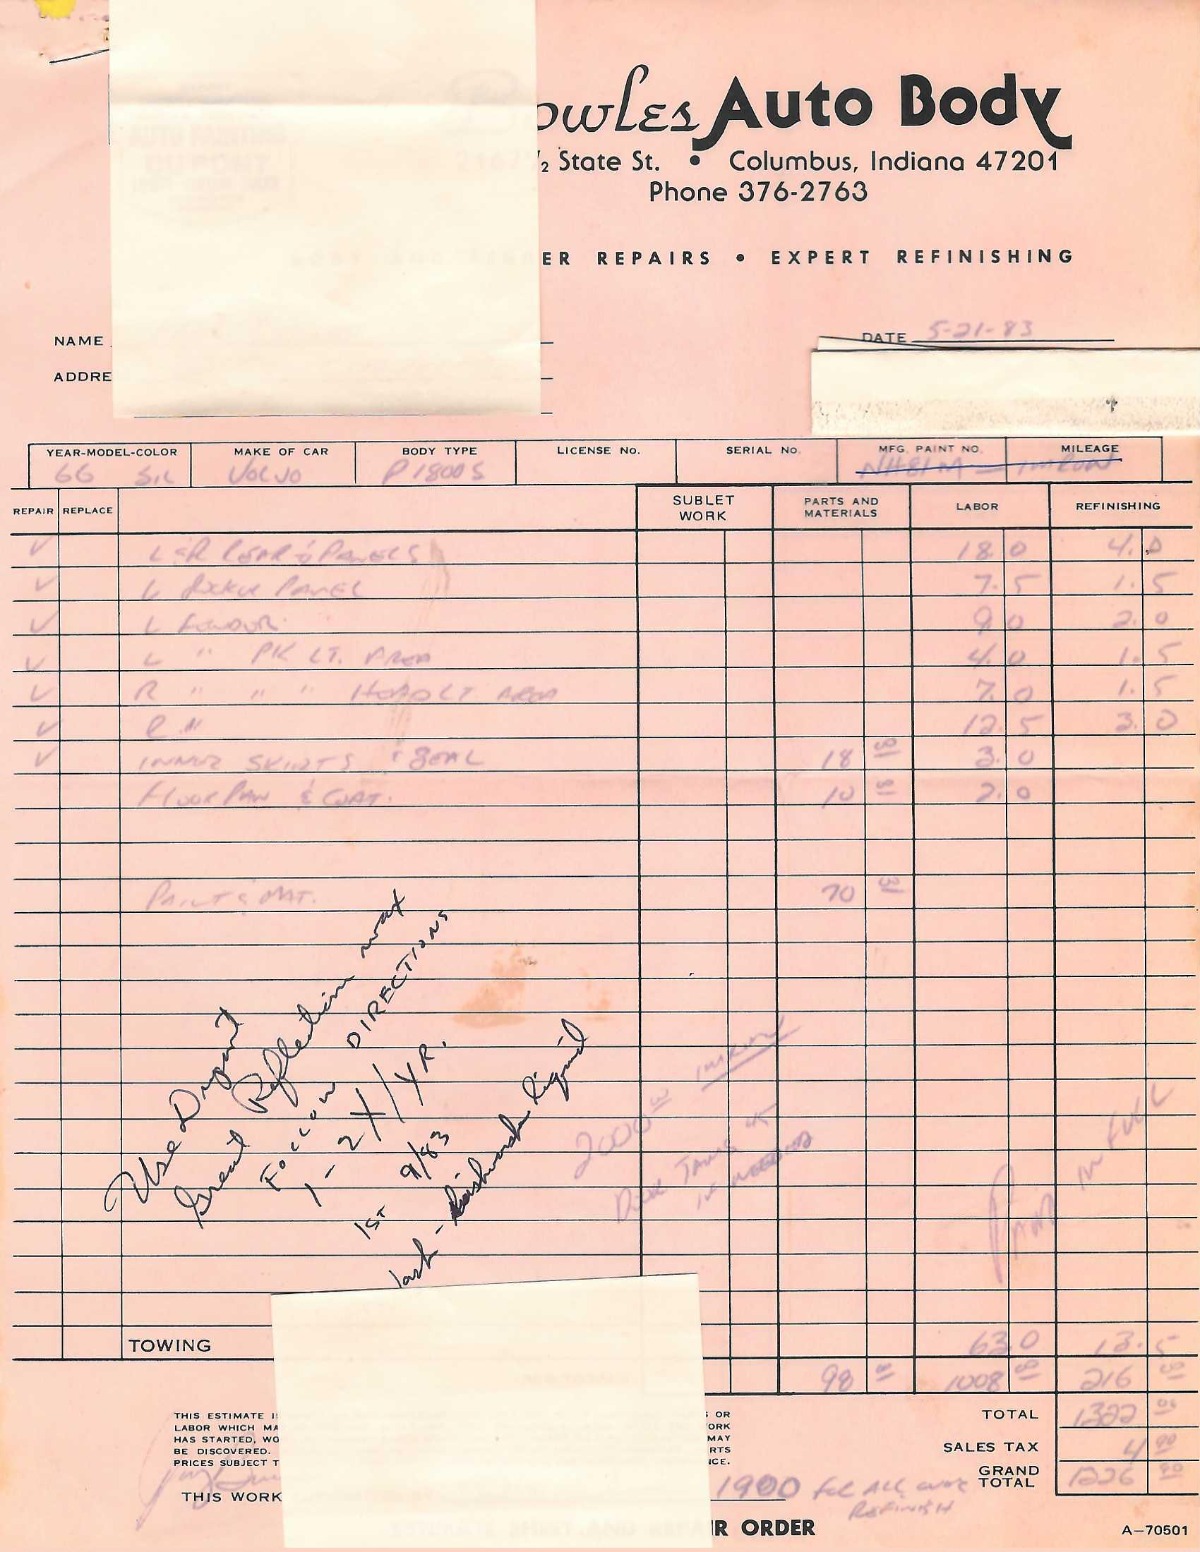 owles Auto Body
½ State St. • Columbus, Indiana 47201
Phone 376-2763
ER REPAIRS • EXPERT REFINISHING
NAME
DATE 5-21-83
ADDRE
YEAR-MODEL-COLOR MAKE OF CAR BODY TYPE LICENSE No. SERIAL No. MFG. PAINT NO. MILEAGE
66 SIL VOLVO P1800S
REPAIR REPLACE SUBLET WORK PARTS AND MATERIALS LABOR REFINISHING
✓ L & R REAR ¼ PANELS 18.0 4.0
✓ L ROCKER PANEL 7.5 1.5
✓ L 9.0 2.0
✓ L " PK LT. AREA 4.0 1.5
✓ R " " " AREA 7.0 1.5
✓ R " 12.5 3.0
✓ INNER SKIRTS & SEAL 18 00 3.0
FLOOR PAN & COAT. 10 00 2.0
PAINT & MAT. 70 00
Use Dupont
Great Reflection wax
FOLLOW DIRECTIONS
1-2X/YR.
1ST 9/83
last - dishwash liquid
2000 00 IMRON
IF NEEDED
PAID IN FULL
TOWING 63.0 13.5
98 00 1008 00 216 00
THIS ESTIMATE I OR
LABOR WHICH MA ORK
HAS STARTED, WO MAY
BE DISCOVERED. RTS
PRICES SUBJECT T NCE.
TOTAL 1322 00
SALES TAX 4 90
GRAND TOTAL 1226 90
THIS WORK 1900 for ALL
REFINISH
IR ORDER
A-70501